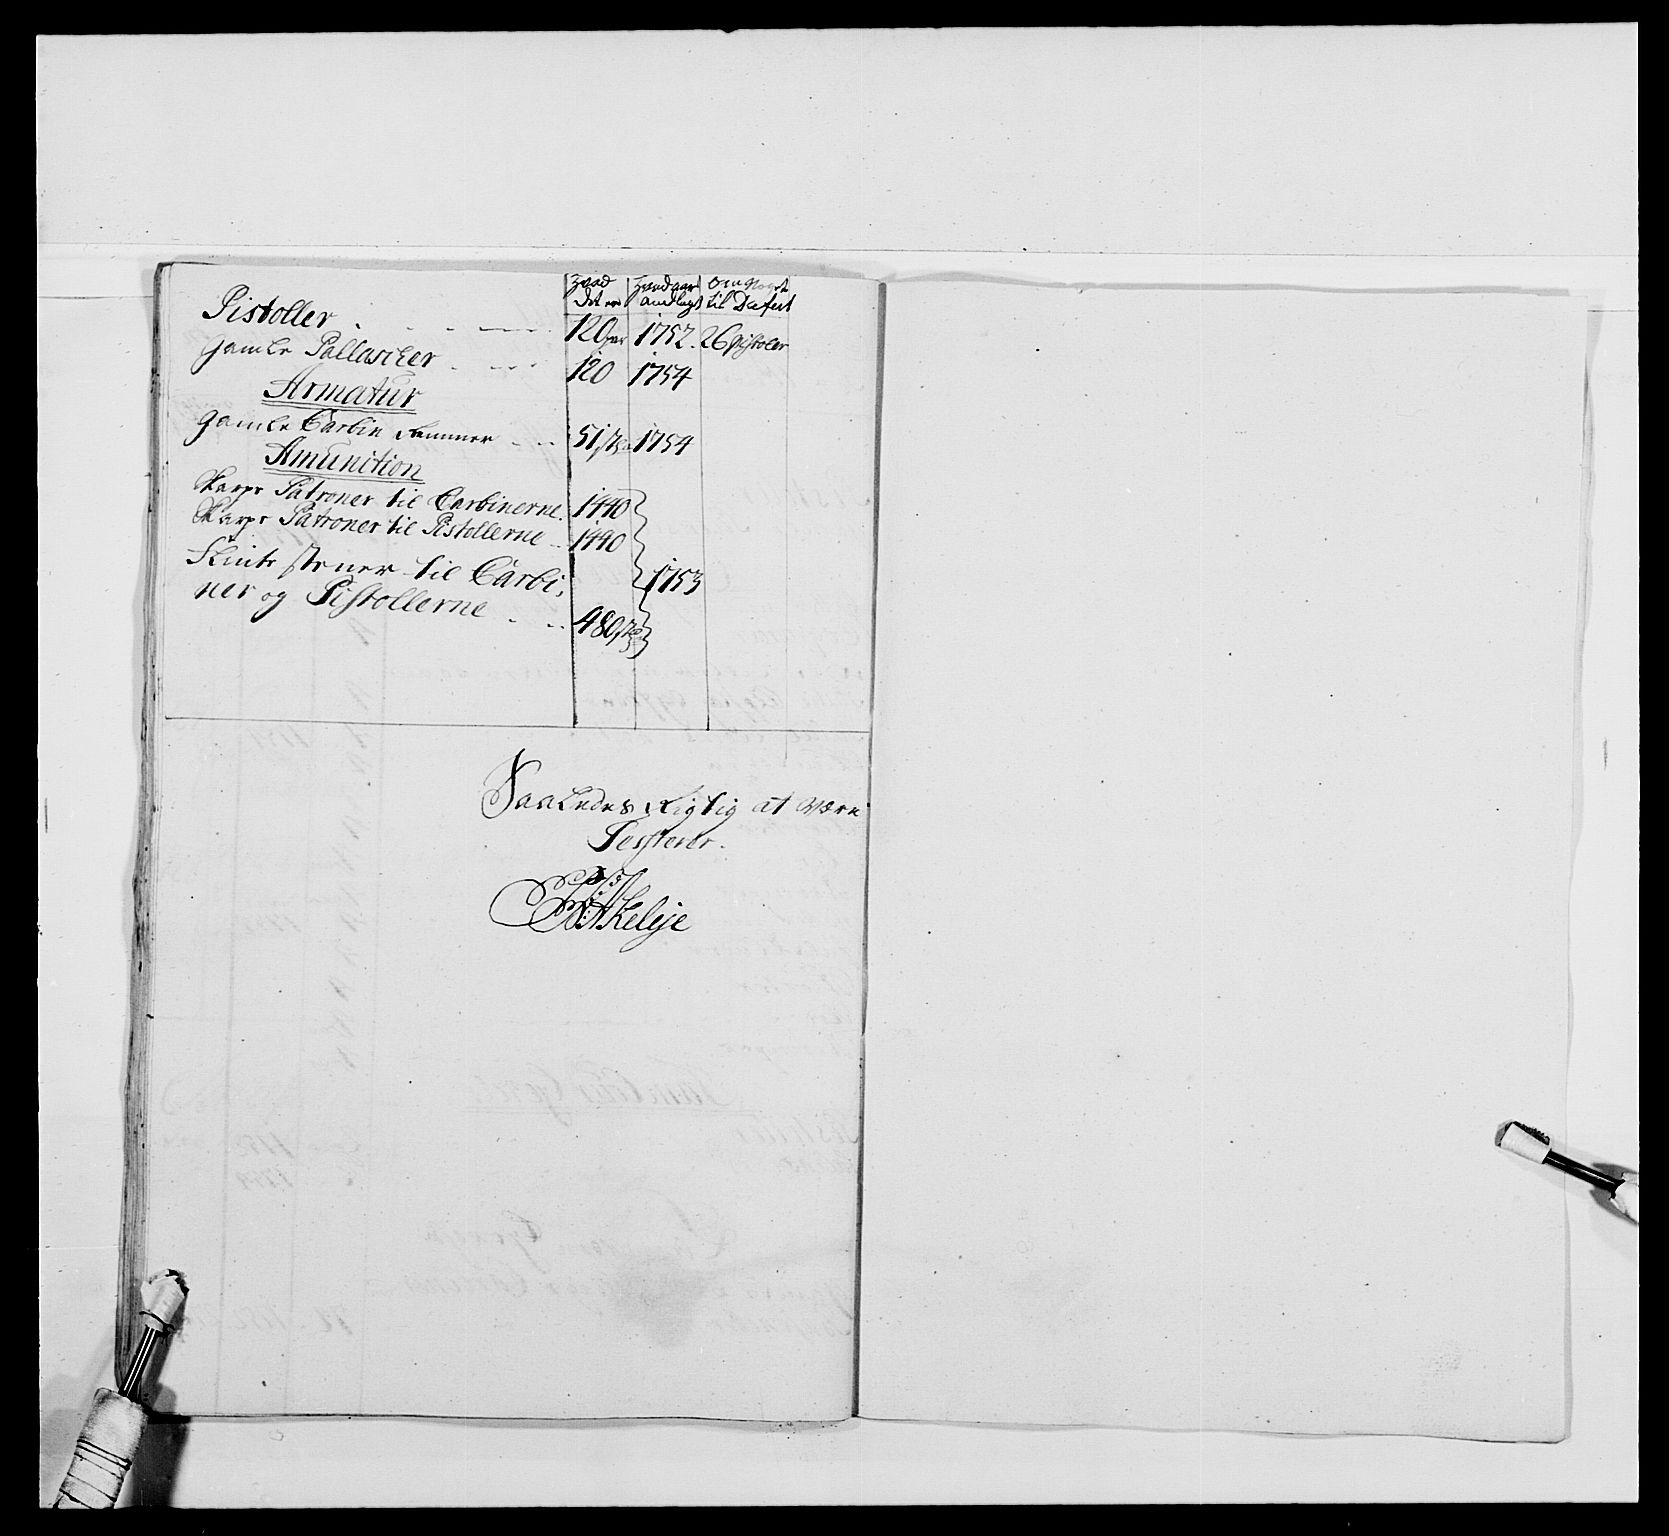 Hvad Hvad aar Om Noget
Det er andlagt til Defect
Pistoller . . . . 120 par 1752. 26 pistoler
gamle Pallascher . . . 120 1754
Armatur
gamle Carbin Remmer . . 51 1754
Amunition
Skarpe Patroner til Carbinerne. 1440
Skarpe Patroner til Pistollerne .. 1440
Flinte stener til Carbi,
1753
ner og Pistollerne . .. 480
Saaledes Rigtig at være
Testerer.
Akeleje